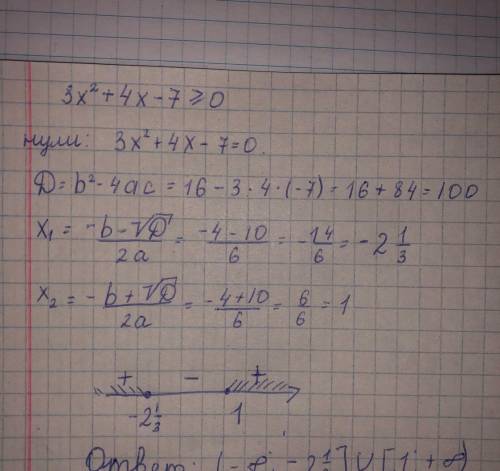 3x² + 4x - 7 ≥ 0
нули: 3x² + 4x - 7 = 0.
D = b² - 4ac = 16 - 3 · 4 · (-7) = 16 + 84 = 100
x₁ = (-b - √D)/(2a) = (-4 - 10)/6 = -14/6 = -2 1/3
x₂ = (-b + √D)/(2a) = (-4 + 10)/6 = 6/6 = 1
+ - +
-2 1/3 1
Ответ: (-∞; -2 1/3] ∪ [1; +∞)